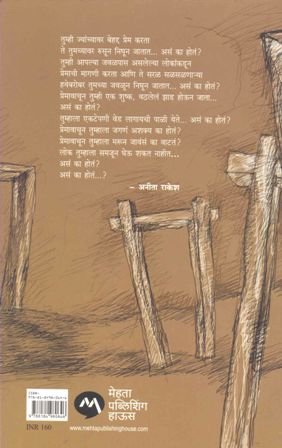 तुम्ही ज्यांच्यावर बेहद्द प्रेम करता
ते तुमच्यावर रुसून निघून जातात... असं का होतं?
तुम्ही आपल्या जवळपास असलेल्या लोकांकडून
प्रेमाची मागणी करता आणि ते सरळ सळसळणाऱ्या
हवेबरोबर तुमच्या जवळून निघून जातात... असं का होतं?
प्रेमावाचून तुम्ही एक शुष्क, वठलेलं झाड होऊन जाता...
असं का होतं?
तुम्हाला एकटेपणी वेड लागायची पाळी येते... असं का होतं?
प्रेमावाचून तुम्हाला जगणं अशक्य का होतं?
प्रेमावाचून तुम्हाला मरून जावंसं का वाटतं?
लोक तुम्हाला समजून घेऊ शकत नाहीत...
असं का होतं?
असं का होतं...?
– अनीता राकेश
मेहता
पब्लिशिंग
हाऊस
INR 160
www.mehtapublishinghouse.com